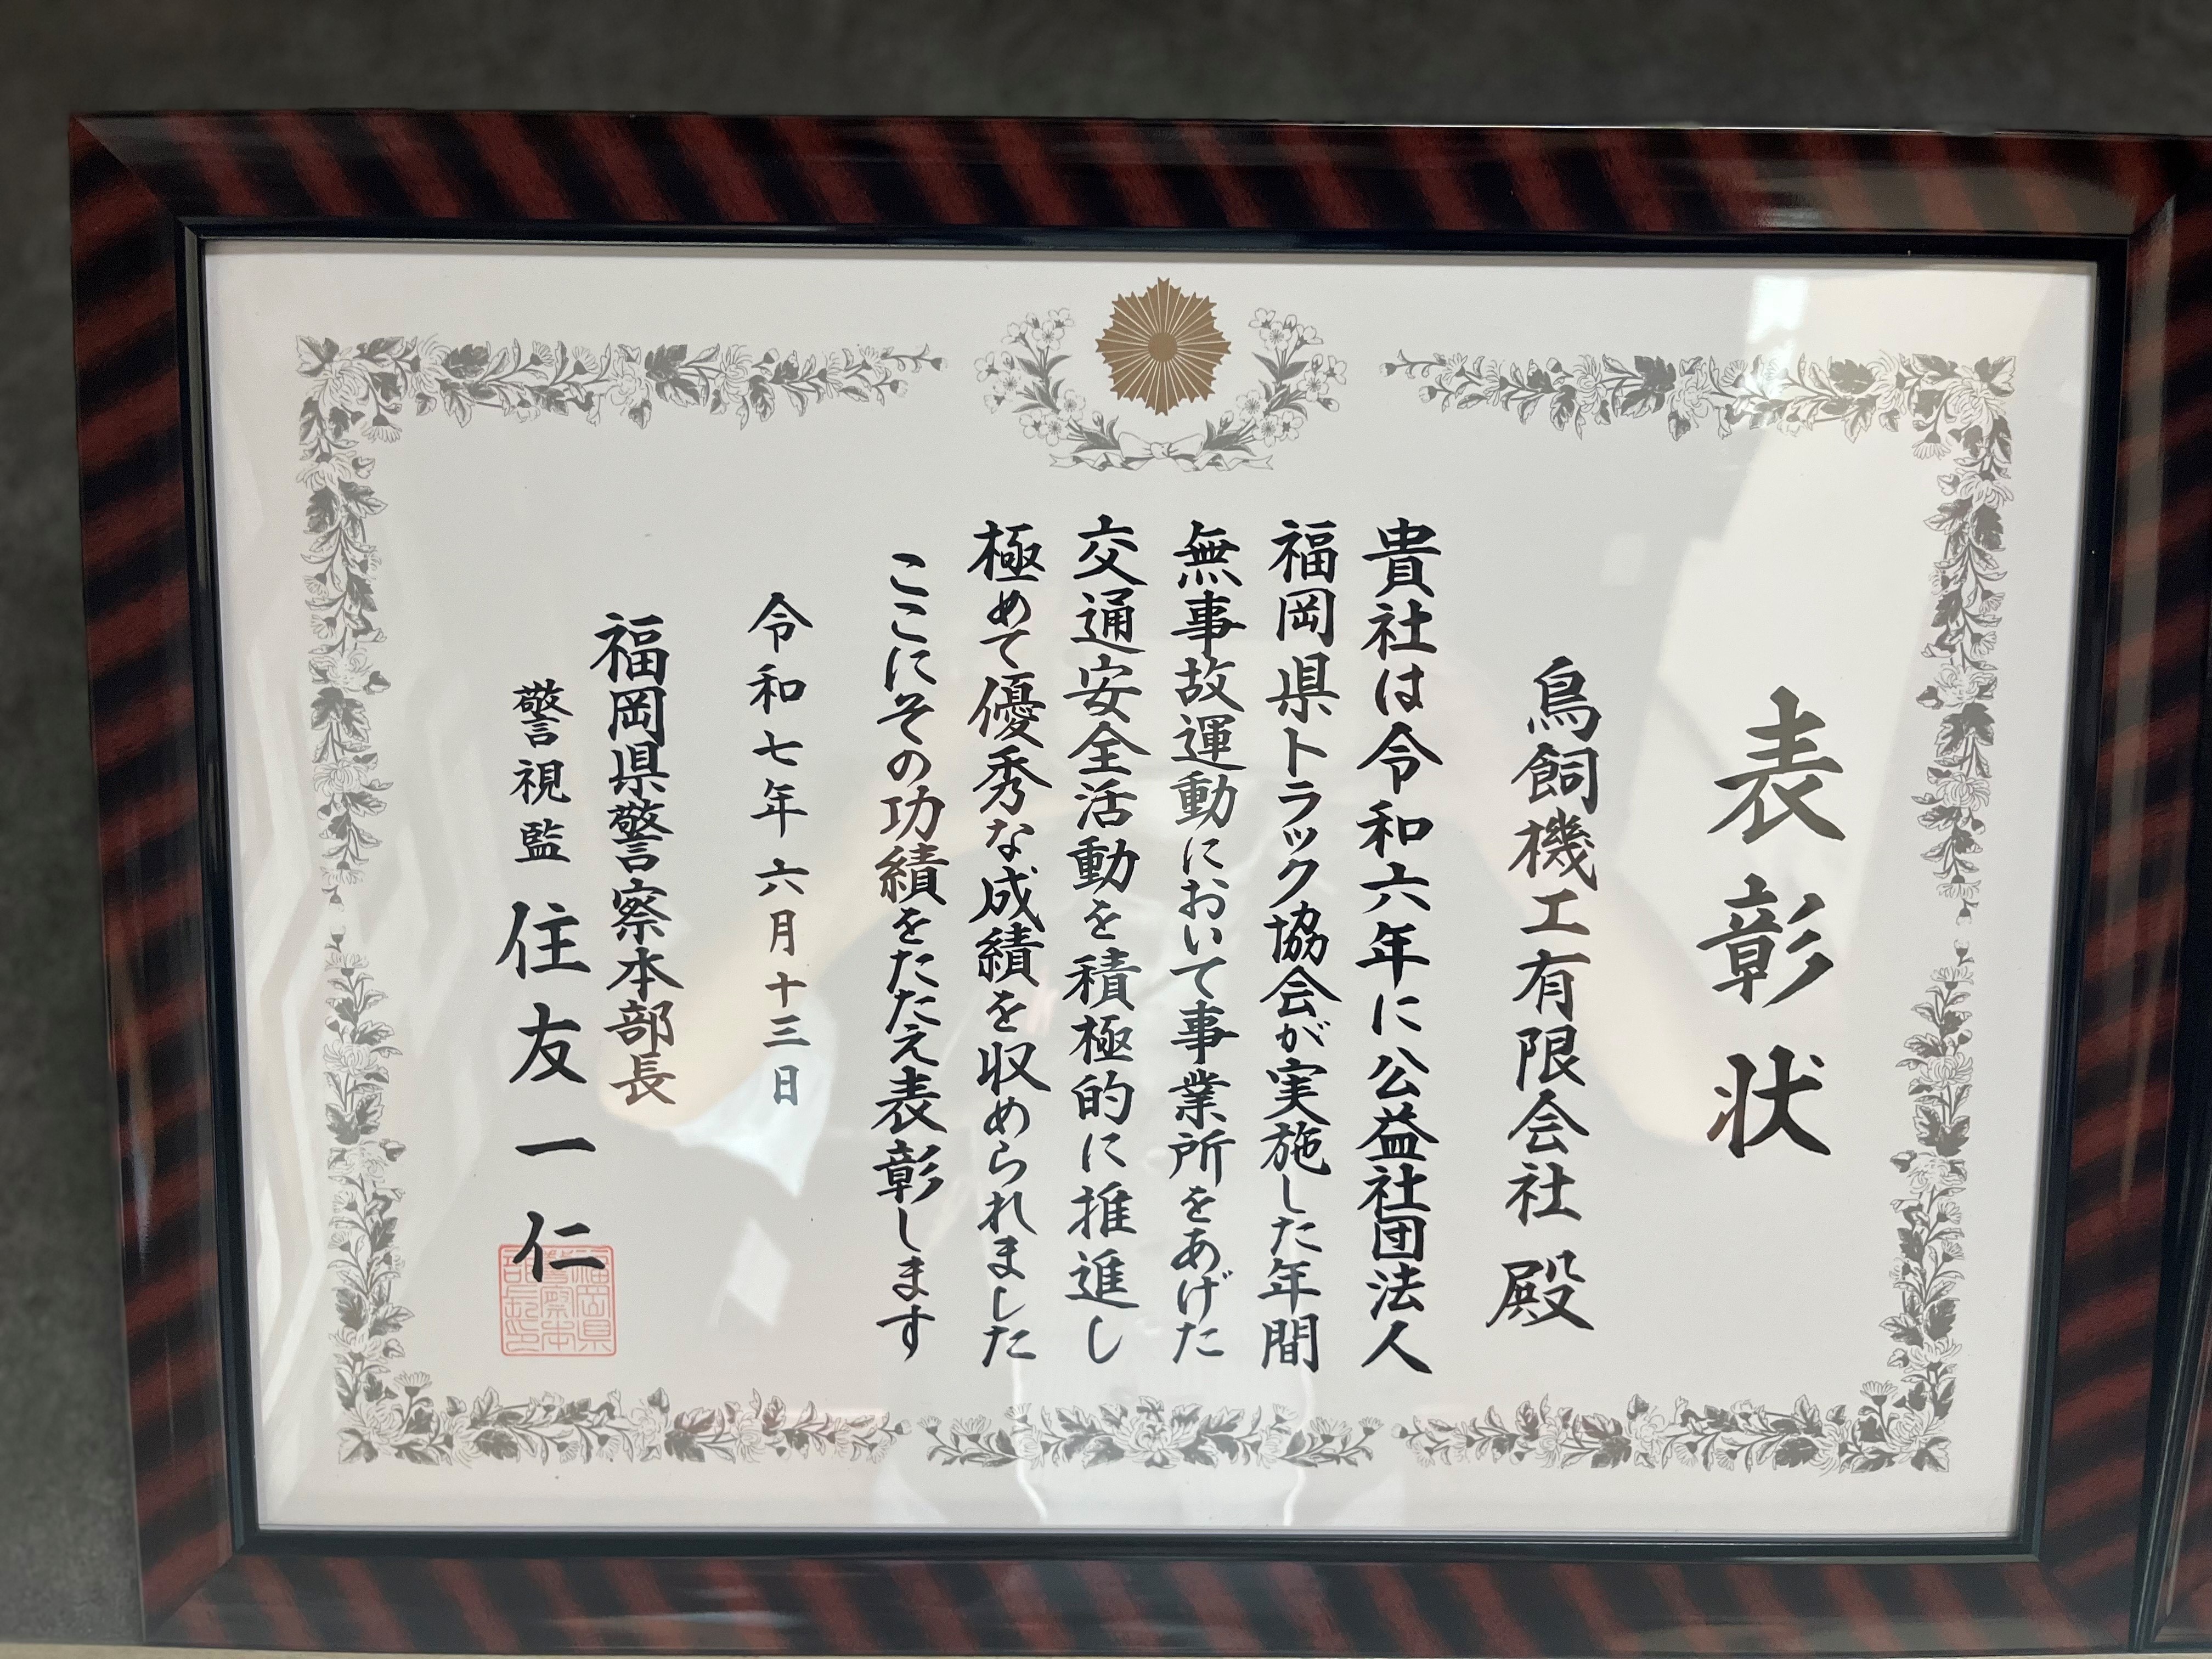 表彰状
鳥飼機工有限会社 殿
貴社は令和六年に公益社団法人
福岡県トラック協会が実施した年間
無事故運動において事業所をあげた
交通安全活動を積極的に推進し
極めて優秀な成績を収められました
ここにその功績をたたえ表彰します
令和七年六月十三日
福岡県警察本部長
警視監 住友一仁
福岡県警察本部長印